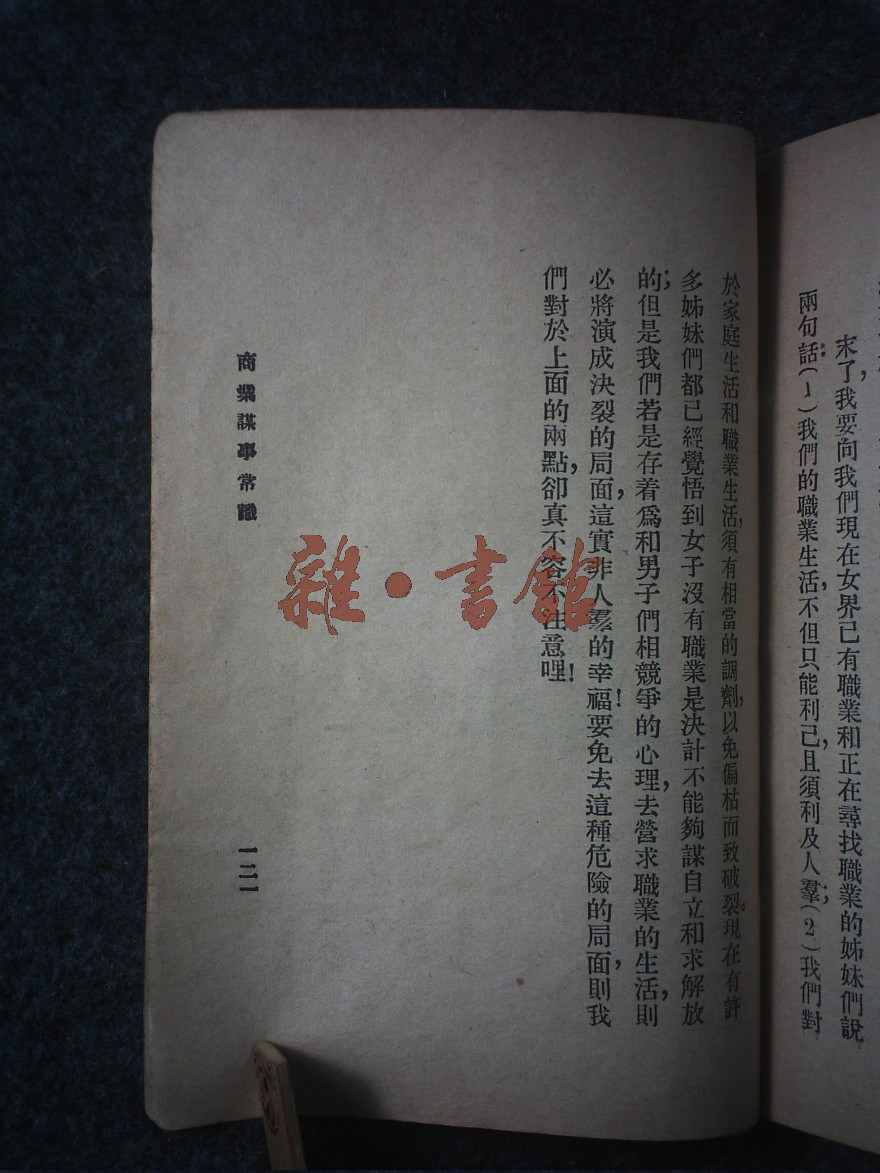 末了，我要向我們現在女界已有職業和正在尋找職業的姊妹們說
兩句話：（1）我們的職業生活，不但只能利己，且須利及人羣；（2）我們對
於家庭生活和職業生活，須有相當的調劑，以免偏枯而致破裂。現在有許
多姊妹們都已經覺悟到女子沒有職業是決計不能夠謀自立和求解放
的；但是我們若是存着爲和男子們相競爭的心理，去營求職業的生活，則
必將演成決裂的局面，這實非人羣的幸福！要免去這種危險的局面，則我
們對於上面的兩點，卻真不容不注意哩！
商業謀事常識
一二一
雜·書館